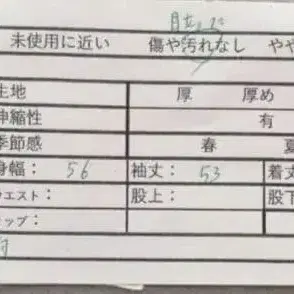 未使用に近い 傷や汚れなし やや
生地 厚 厚め
伸縮性 有
季節感 春 夏
身幅: 56 袖丈: 53 着丈
ウエスト: 股上: 股下
ップ: